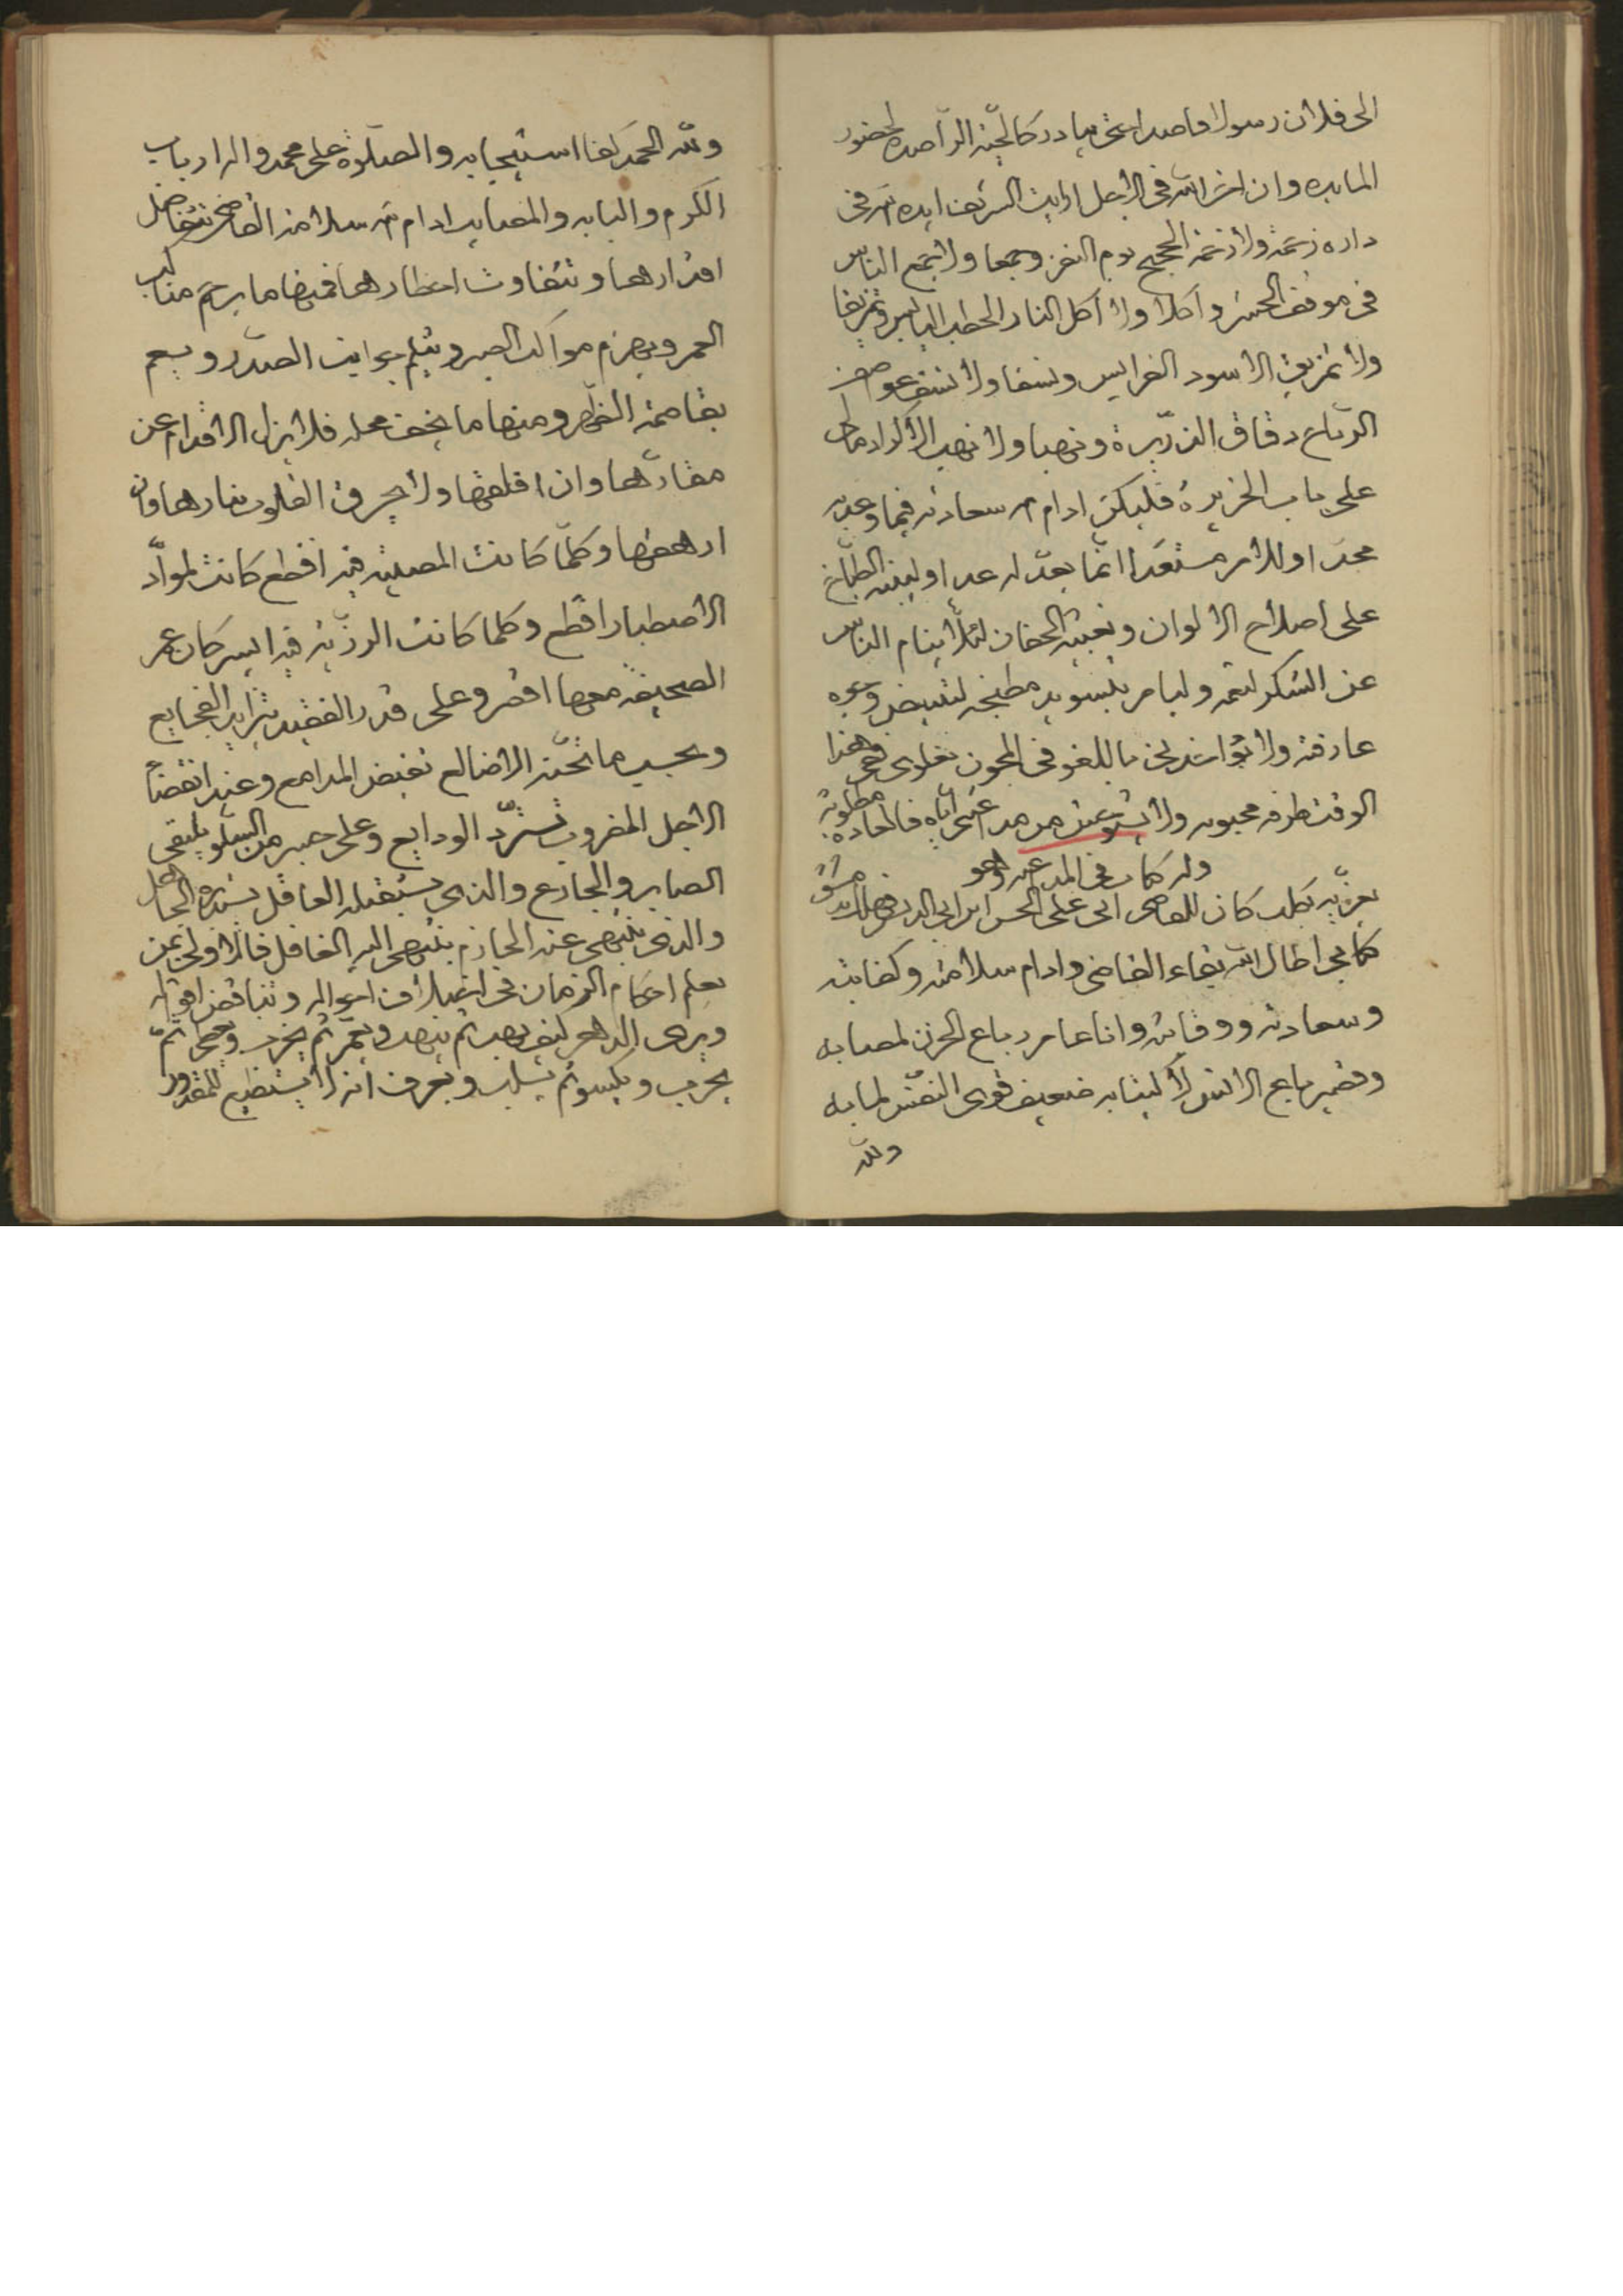 الى فلان رسولا قاصدا حتى يبادر كالجنة الراصده لحضور
المايده وان اخر الله في الاجل رايت الشريف ايده الله في
داره زحمة ولا زحمة الحجيج يوم النفر وجمعا ولا تجمع الناس
في موقف الحشر وأكلا ولا أكل النار الحطب اليابس وتمزيقا
ولا تمزيق الاسود الفرايس ونسفا ولا نسف
الرياح دقاق الذريرة ونهبا ولا نهب الاكراد
على باب الجزيرة فليكن ادام الله سعادته فيما وعد به
مجدا وللامر مستعدا انما يعد له عدا وليبنه الطباخ
على اصلاح الالوان وتعبية الجفان لئلا ينام الناس
عن الشكر لنعمه وليامر بتسويد مطبخه لتبييض وجه
عارفته ولا يؤاخذني باللغو في المجون
الوقت طرفه محبوبه ولا من مد
وله كتاب في المداعبه وهو
تعزية بكلب كان للقاضى ابى على الحسن
كتابي اطال الله بقاء القاضى وادام سلامته وكفايته
وسعادته ووقايته وانا عامر رباع الحزن لمصابه
وقصير باع الانس لاكتيابه ضعيف قوى النفس لما به
ولله
ولله الحمد كفا استيجابه والصلوة على محمد واله ارباب
الكرم والمصايب ادام الله سلامة القاضى تتفاضل
اقدارها وتتفاوت اخطارها فمنها ما يرحم مناكب
العمر ويهزم مواكب الصبر ويثلم جوانب الصدر
بقاصمة الظهر ومنها ما يخف محله فلا يزل الاقدام عن
مقارها وان اقلقها ولا يحرق القلوب بنارها وان
ارهقها وكلما كانت المصيبه فيه افظع كانت لمواد
الاصطبار اقطع وكلما كانت الرزية فيه ايسر كان عمر
الصحيفه معها اقصر وعلى قدر الفقيد تزايد الفجايع
وبحسب ما تجنه الاضالع تفيض المدامع وعند انقضاء
الاجل المضروب تسترد الودايع وعلى جسر من السلو يلتقى
الصابر والجازع والذى يستقبله العاقل يستدبره الجاهل
والذى ينتهى عنه الحازم ينتهى اليه الغافل فالاولى بمن
يعلم احكام الزمان في اختلاف احواله وتناقض افعاله
ويرى الدهر كيف يهب ثم ينهب ويعمر ثم يخرب ثم
يحرب ويكسو ثم يسلب ويعرف انه لا يستطيع للمقدور